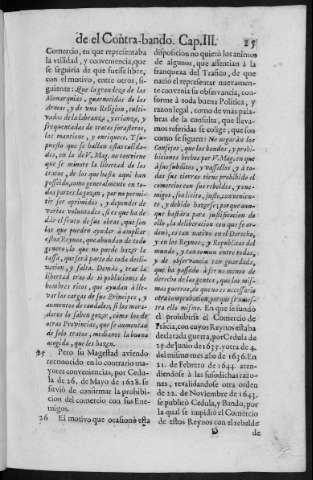 de el Contra-bando. Cap. III. 25
Comercio, en que representaba
la vtilidad, y conveniencia, que
se seguiria de que fuesse libre,
con el motivo, entre otros, si-
guiente: Que la grandeza de las
Monarquias, guarnecidas de las
Armas, y de vna Religion, culti-
vadas de la labranza, y crianza, y
frequentadas de tratos forasteros,
las mantiene, y enriquece. Y su-
puesto que se hallan estas calida-
des, en la de V. Mag. no conviene
que se minore la libertad de los
tratos, de los que hasta aqui han
posseido, como generalmente en to-
das partes la gozan, por no permi-
tir ser oprimidos, y depender de
verlos voluntades, si es que ha de
dàr el fruto de sus obras, que son
las que pueden ayudar à ampliar
estos Reynos, que abundan de todo
genero, lo que no puede hazer la
tassa, que serà parte de toda decli-
nacion, y falta. Demàs, trae la
libertad trae de sì poblaciones de
hombres ricos, que ayudan à lle-
var las cargas de sus Principes, y
aumentos de caudales, si los mora-
dores la saben gozar, como los de
otras Provincias, que se aumentan
de solo tratos, mediante la buena
acogida, que les hazen.
25 Pero su Magestad aviendo
reconocido en lo contrario ma-
yores conveniencias, por Cedu-
la de 26. de Mayo de 1628. se
sirviò de confirmar la prohibi-
cion del comercio con sus Ene-
migos.
26 El motivo que ocasionò esta
disposicion no quietò los animos
de algunos, que assentian à la
franqueza del Trafico, de que
naciò el representar nuevamente
convenia su observancia, con-
forme à toda buena Politica, y
razon legal, como de vnas palabras
de la consulta, que lleva-
mos referida se colige, que son
como se siguen: No negaràn los
Consejos, que los bandos, y prohi-
biciones hechas por V. Mag. en que
à sus subditos, y vassallos, y à to-
das sus tierras tienen prohibido el
comercio con sus rebeldes, y ene-
migos, sea licito, justo, convenien-
te, y debido hazerse; porque aun-
que bastàra para justificacion de
ello, la deliberacion con que se or-
denò, es tan nativo en el Derecho,
y en los Reynos, y Republicas del
mundo, y tan comun entre todos,
y de observancia tan guardada,
que ha passado à ser no menos de
derecho de las gentes, que las mis-
mas guerras, de que no es necessario
otra comprobacion, porque se mues-
tra ella misma. En que insistiendo
el prohibirse el Comercio de
Francia, con cuyos Reynos estaba
declarada guerra, por Cedula de
25 de Junio de 1635. y otra de 4.
del mismo mes año de 1636. En
21. de Febrero de 1644. atendien-
do à las susodichas razo-
nes, revalidandose otra orden
de 22. de Noviembre de 1643.
se publicò Cedula, y Bando, por
la qual se impidiò el Comercio
de estos Reynos con el rebelde
D
de